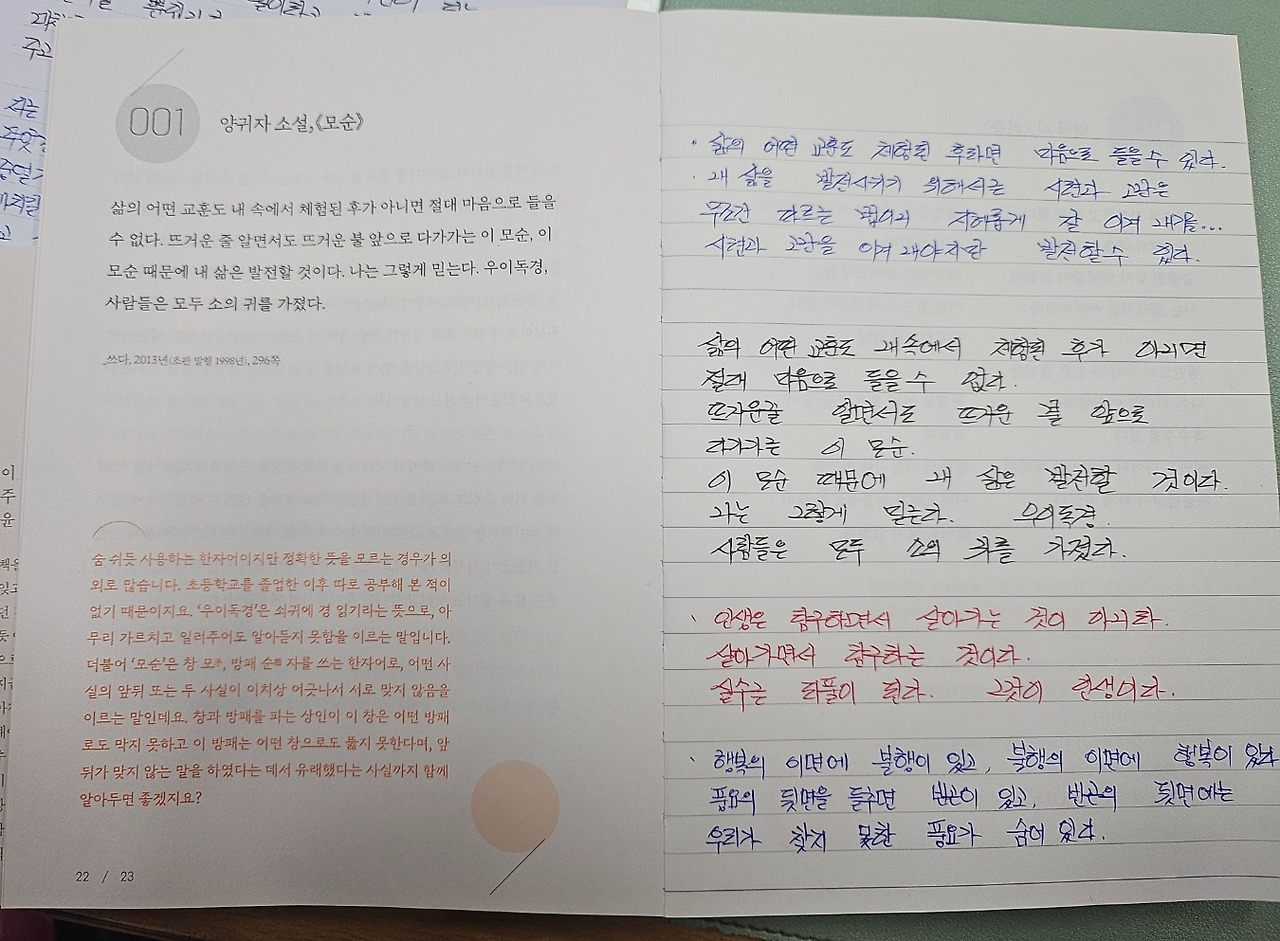 001
양귀자 소설,《모순》
삶의 어떤 교훈도 내 속에서 체험된 후가 아니면 절대 마음으로 들을
수 없다. 뜨거운 줄 알면서도 뜨거운 불 앞으로 다가가는 이 모순, 이
모순 때문에 내 삶은 발전할 것이다. 나는 그렇게 믿는다. 우이독경,
사람들은 모두 소의 귀를 가졌다.
쓰다, 2013년(초판 발행 1998년), 296쪽
숨 쉬듯 사용하는 한자어이지만 정확한 뜻을 모르는 경우가 의
외로 많습니다. 초등학교를 졸업한 이후 따로 공부해 본 적이
없기 때문이지요. '우이독경'은 쇠귀에 경 읽기라는 뜻으로, 아
무리 가르치고 일러주어도 알아듣지 못함을 이르는 말입니다.
더불어 '모순'은 창 모矛, 방패 순盾 자를 쓰는 한자어로, 어떤 사
실의 앞뒤 또는 두 사실이 이치상 어긋나서 서로 맞지 않음을
이르는 말인데요. 창과 방패를 파는 상인이 이 창은 어떤 방패
로도 막지 못하고 이 방패는 어떤 창으로도 뚫지 못한다며, 앞
뒤가 맞지 않는 말을 하였다는 데서 유래했다는 사실까지 함께
알아두면 좋겠지요?
22 / 23
· 삶의 어떤 교훈도 체험된 후라면 마음으로 들을 수 있다.
· 내 삶을 발전시키기 위해서는 시련과 고난은
무조건 따르는 법이라 지혜롭게 잘 이겨 내기를...
시련과 고난을 이겨 내야지만 발전할 수 있다.
삶의 어떤 교훈도 내 속에서 체험된 후가 아니면
절대 마음으로 들을 수 없다.
뜨거운줄 알면서도 뜨거운 불 앞으로
다가가는 이 모순.
이 모순 때문에 내 삶은 발전할 것이다.
나는 그렇게 믿는다. 우이독경.
사람들은 모두 소의 귀를 가졌다.
· 인생은 탐구하면서 살아가는 것이 아니라.
살아가면서 탐구하는 것이다.
실수는 되풀이 된다. 그것이 인생이다.
· 행복의 이면에 불행이 있고, 불행의 이면에 행복이 있다
풍요의 뒷면을 들추면 빈곤이 있고, 빈곤의 뒷면에는
우리가 찾지 못한 풍요가 숨어 있다.